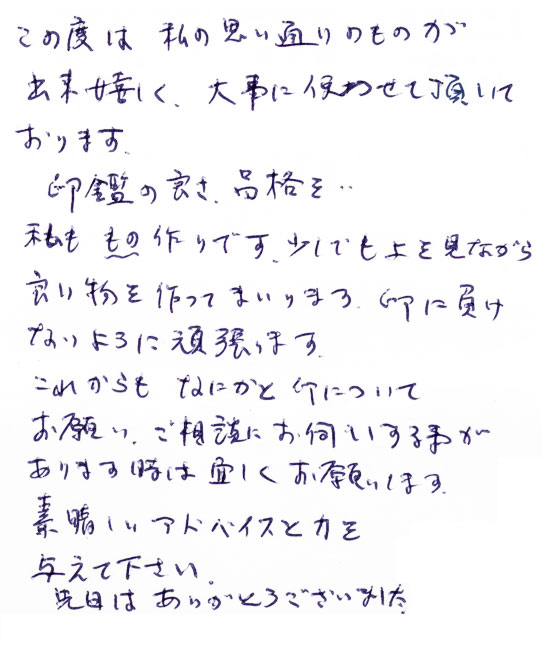 この度は 私の思い通りのものが
出来嬉しく、大事に使わせて頂いて
おります。
印鑑の良さ、品格を‥
私も もの作りです。少しでも上を見ながら
良い物を作ってまいります。印に負け
ないように頑張ります。
これからも なにかと印について
お願い、ご相談にお伺いする事が
あります時は宜しくお願いします。
素晴しいアドバイスと力を
与えて下さい。
先日は ありがとうございました